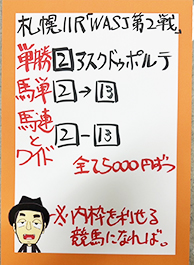 札幌11R「WASJ第2戦」
単勝 2 アスクドゥポルテ
馬単 2→13
馬連とワイド 2-13
全て5000円ずつ
※内枠を利せる
競馬になれば。